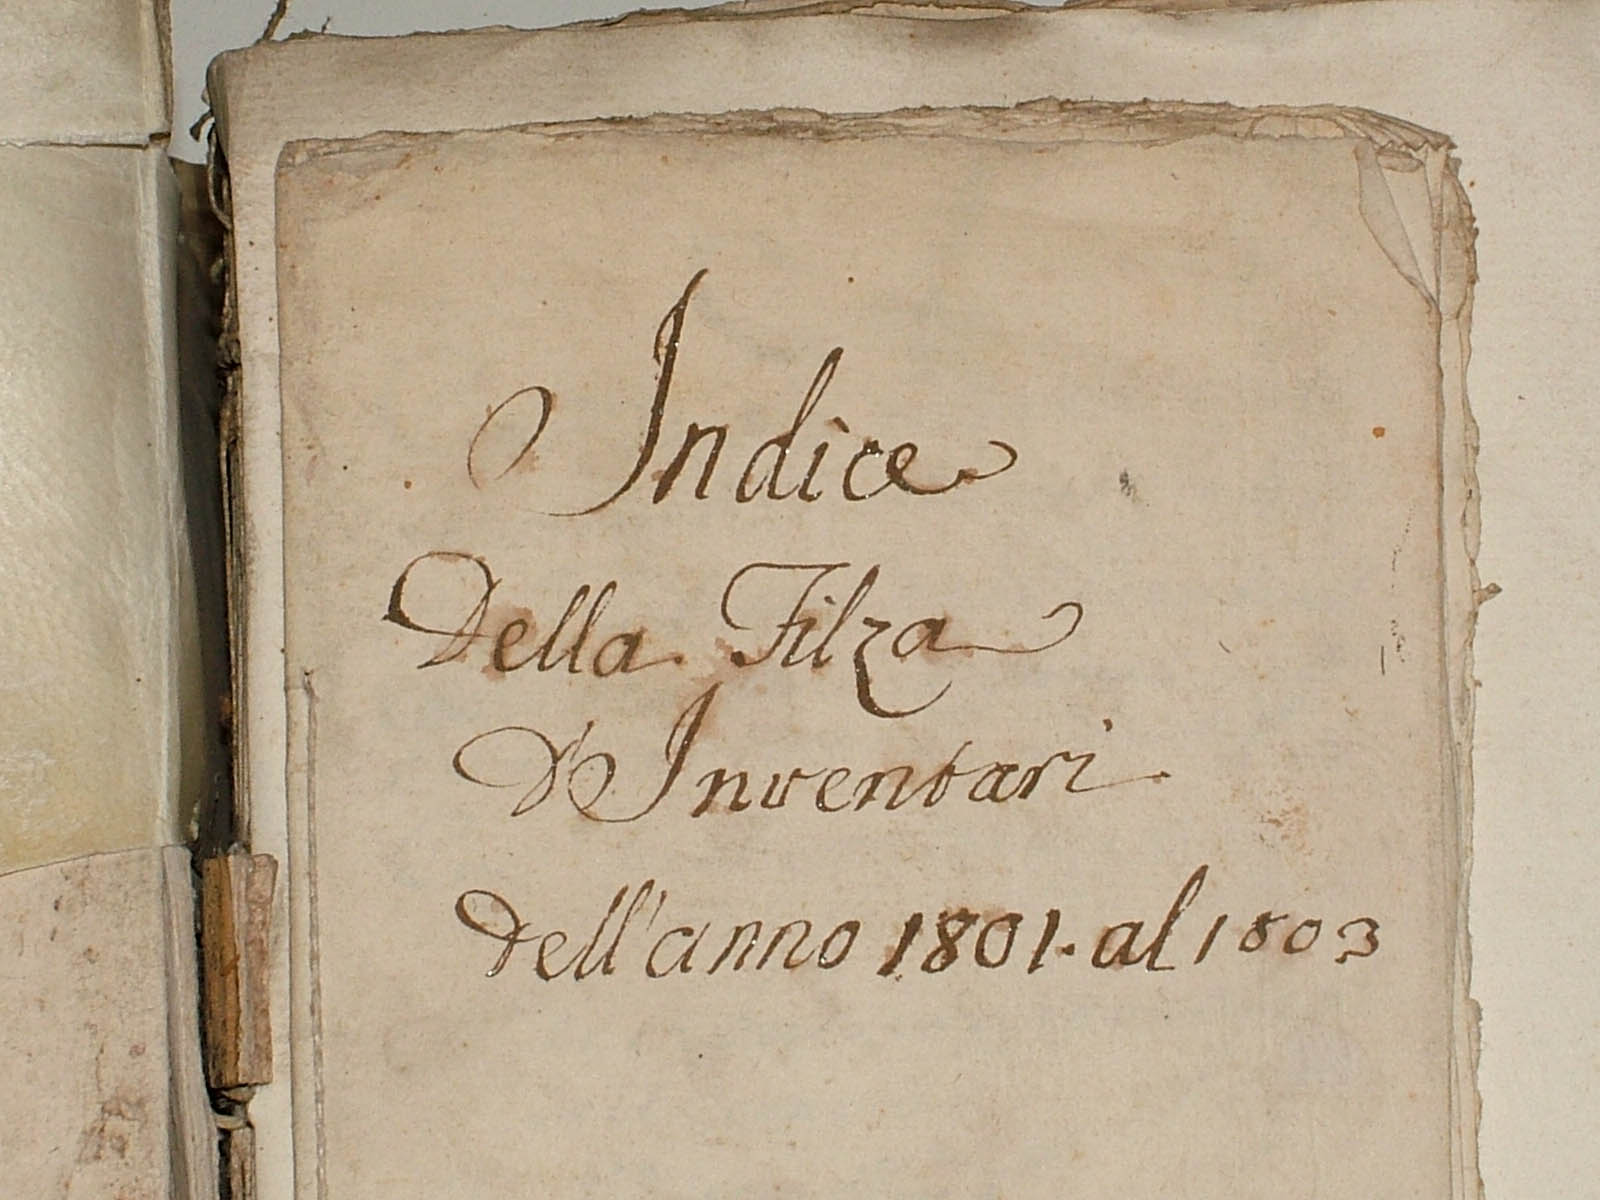 Indice
Della Filza
d'Inventari
dell'anno 1801. al 1803